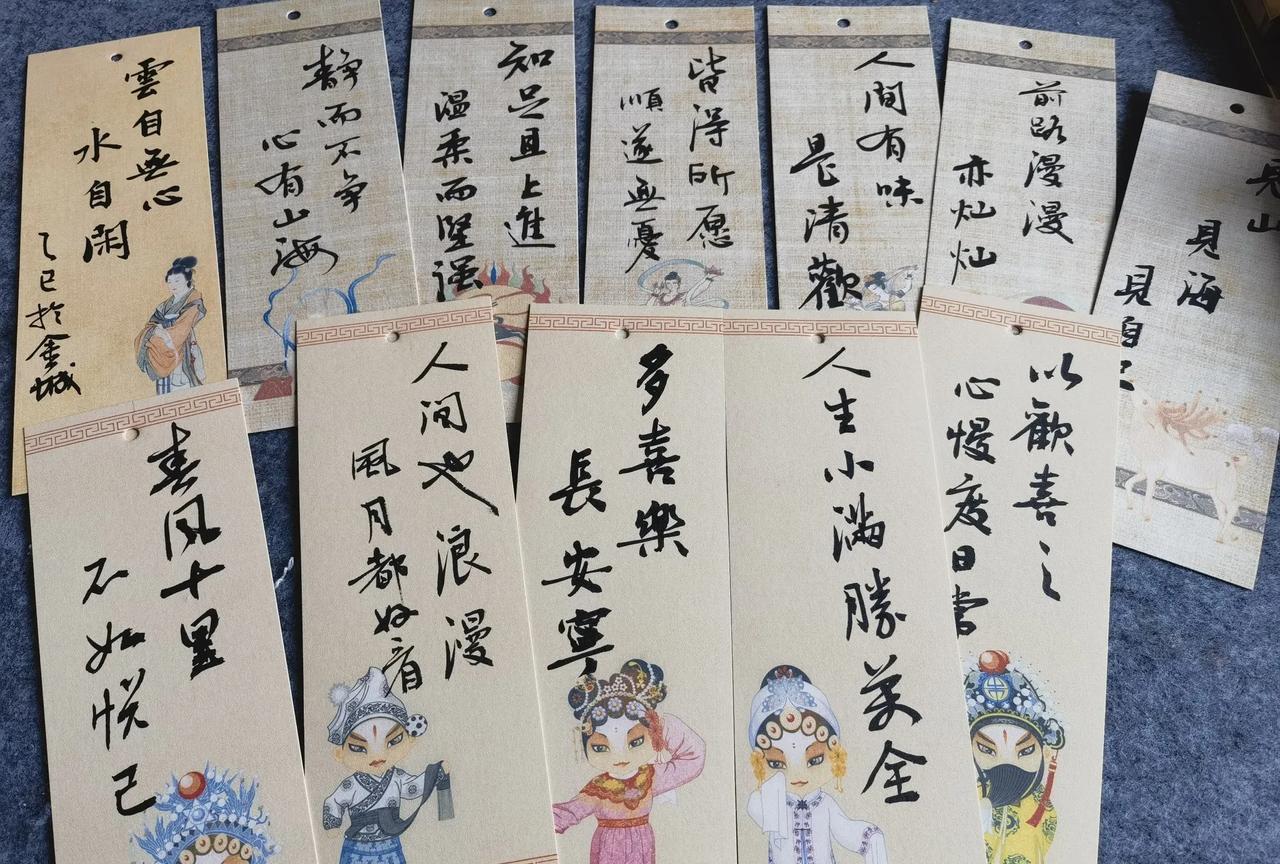 雲自無心
水自閑
乙巳於金城
静而不争
心有山海
知足且上進
温柔而堅强
皆得所愿
順遂無憂
人間有味
是清歡
前路漫漫
亦灿灿
見山
見海
見自己
春风十里
不如悦己
人间也浪漫
風月都好看
多喜樂
長安寧
人生小满勝萬全
以歡喜之
心慢度日常